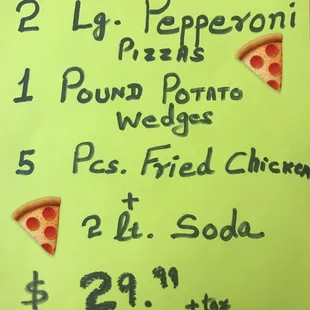 2 Lg. Pepperoni
Pizzas
1 Pound Potato
Wedges
5 Pcs. Fried Chicken
+
2 lt. Soda
$ 29.99 +tax